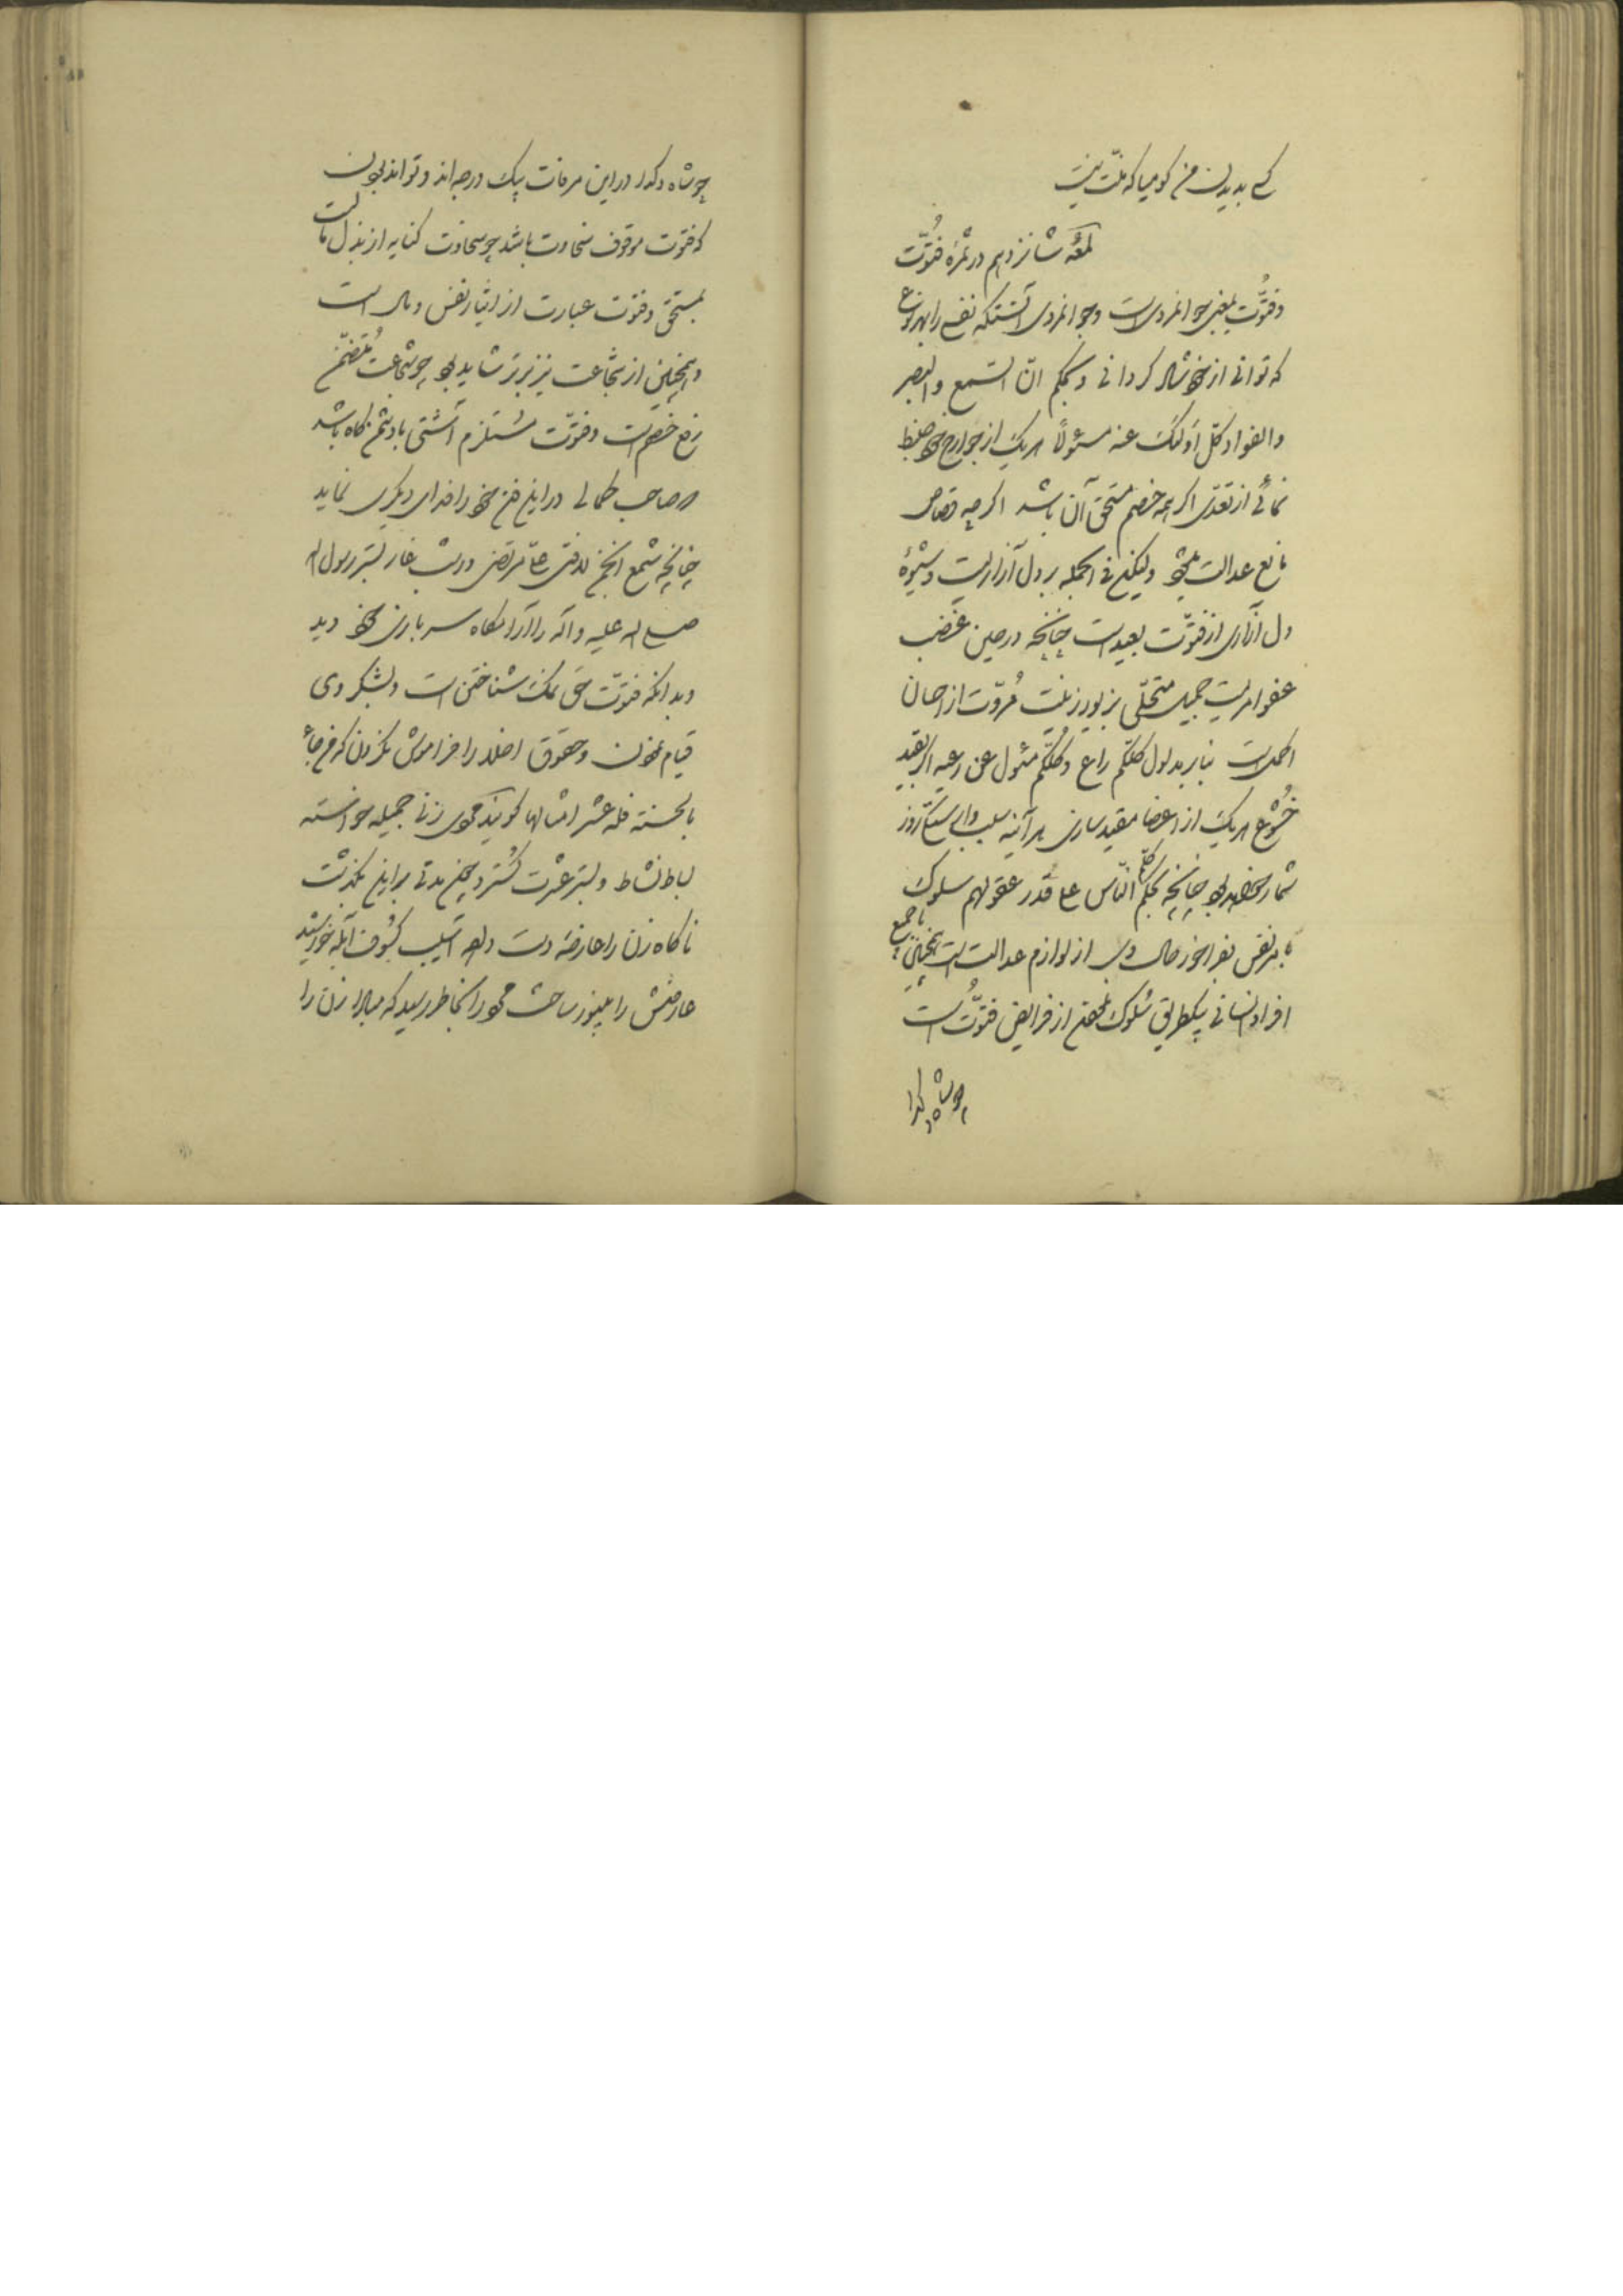 کسی بدیدن من کو میا که منّت نیست
لمعهٔ شانزدهم در ثمرهٔ فتُوّت
و فتُوّت بمعنی جوانمردی است و جوانمردی آنستکه نفسی را بهر نوع
که توانی از خود شاد گردانی و بحکم انّ السّمع و البصر
و الفواد کلّ اولئک عنه مسئولاً هر یک از جوارح خود ضبط
نمائی از تعدّی اگر چه خصم مستحق آن باشد اگر چه قصاص
مانع عدالت و لیکن فی الجمله بر دل آزاریست و شیوهٔ
دل آزاری از فتوّت بعید است چنانچه در حین غضب
عفو امریست جمیل متحلّی بزیور زینت مُروّت از احسان
اکمل است بنابر مدلول کلّکم راع و کلّکم مسئول عن رعیه اگر بقید
خُشوع هر یک از اعضا مقید سازی هر آینه سبب روز
شمار خواهد بود چنانچه بحکم کلّم النّاس علی قدر عقولهم سلوک
با هر نفس فراخور حال وی از لوازم عدالت است همچنین با جمیع
افراد انسانی بیکطریق سُلوک از فرایض فتوّت است
چو شاه و گدا
چو شاه و گدا در این مرفات یک درجه‌اند و تواند بودن
که فتوت موقوف سخاوت باشد چو سخاوت کنایه از بذل مال است
بمستحق و فتوت عبارت از ایثار نفس و مال است
و همچنین از شجاعت نیز برتر شاید بود چو شجاعت مُتضمّن
رفع خصم است و فتوّت مستلزم آشتی با دشمن گاه باشد
که صاحب کمالی در این فن خود را فدای دیگری نماید
چنانچه شمع انجمن لافتی علی مرتضی در شب غار بستر رسول اله
صلی اله علیه و آله را آرامگاه سربازی خود دید
و بدانکه فتوّت حق نمک شناختن است و بشکر وی
قیام نمودن و حقوق اخلاد را فراموش نکردن که من جاء
بالحسنه فله عشر امثالها گویند محموی زنی جمیله خواسته
بساط نشاط و بستر عشرت گسترد چون مدتی بر این بگذشت
ناگاه زن را عارضهٔ دست داد آسیب کسوف آبله خورشید
عارضش را بی‌نور ساخت محمود را بخاطر رسید که مبادا زن را